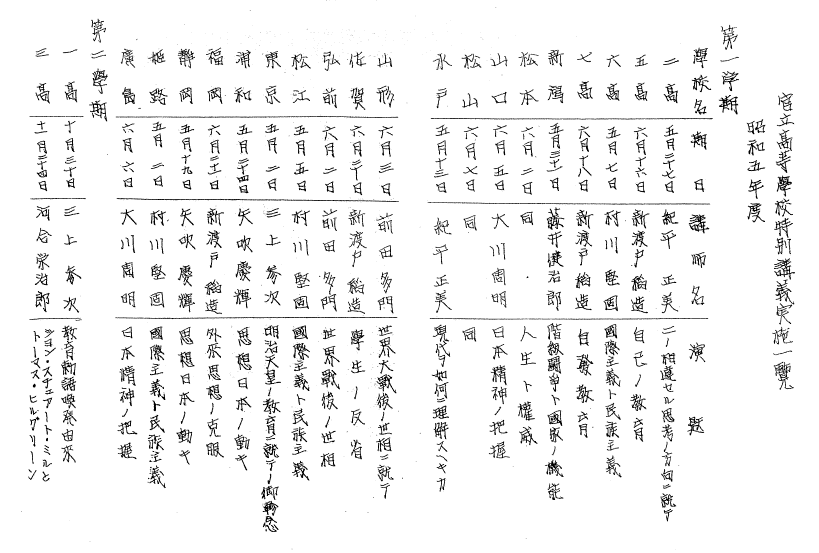 官立高等學校特別講義実施一覽
昭和五年度
第一学期
學校名 期日 講師名 演題
二高 五月二十七日 紀平正美 二ノ相違セル思考ノ方向ニ就テ
五高 六月十六日 新渡戸稲造 自己ノ教育
六高 五月七日 村川堅固 國際主義ト民族主義
七高 六月十八日 新渡戸稲造 自發教育
新潟 五月三十一日 藤井健治郎 階級闘争ト國家ノ機能
松本 六月二日 同 人生ト權威
山口 六月五日 大川周明 日本精神ノ把握
松山 六月七日 同 同
水戸 五月十三日 紀平正美 現代ヲ如何ニ理解スヘキカ
山形 六月三日 前田多門 世界大戰後ノ世相ニ就テ
佐賀 六月二十日 新渡戸稲造 學生ノ反省
弘前 六月二日 前田多門 世界戰後ノ世相
松江 五月五日 村川堅固 國際主義ト民族主義
東京 五月二日 三上参次 明治天皇ノ教育ニ就テノ御軫念
浦和 五月二十四日 矢吹慶輝 思想日本ノ動キ
福岡 六月二十一日 新渡戸稲造 外來思想ノ克服
靜岡 五月十九日 矢吹慶輝 思想日本ノ動キ
姫路 五月二日 村川堅固 國際主義ト民族主義
廣島 六月六日 大川周明 日本精神ノ把握
第二學期
一高 十月三十日 三上参次 教育勅語喚発由来
三高 十一月二十四日 河合栄治郎 ジョン・スチュアート・ミルと
トーマス・ヒルグリーン